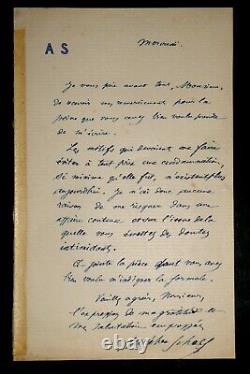 A S
Mercredi.
Je vous prie avant tout, Monsieur,
de recevoir mes remerciements pour la
peine que vous avez bien voulu prendre
de m'écrire.
Les motifs qui devaient me faire
éviter à tout prix une condamnation,
si minime qu'elle fût, n'existent plus
aujourd'hui. Je n'ai donc aucune
raison de me risquer dans une
affaire contre l'issue de la
quelle vous émettez de doutes
Ci-joint la pièce dont vous avez
bien voulu m'indiquer la formule.
Veuillez agréer, Monsieur,
l'expression de ma gratitude et
mes salutations empressées
Scholl
© bonsbou.com